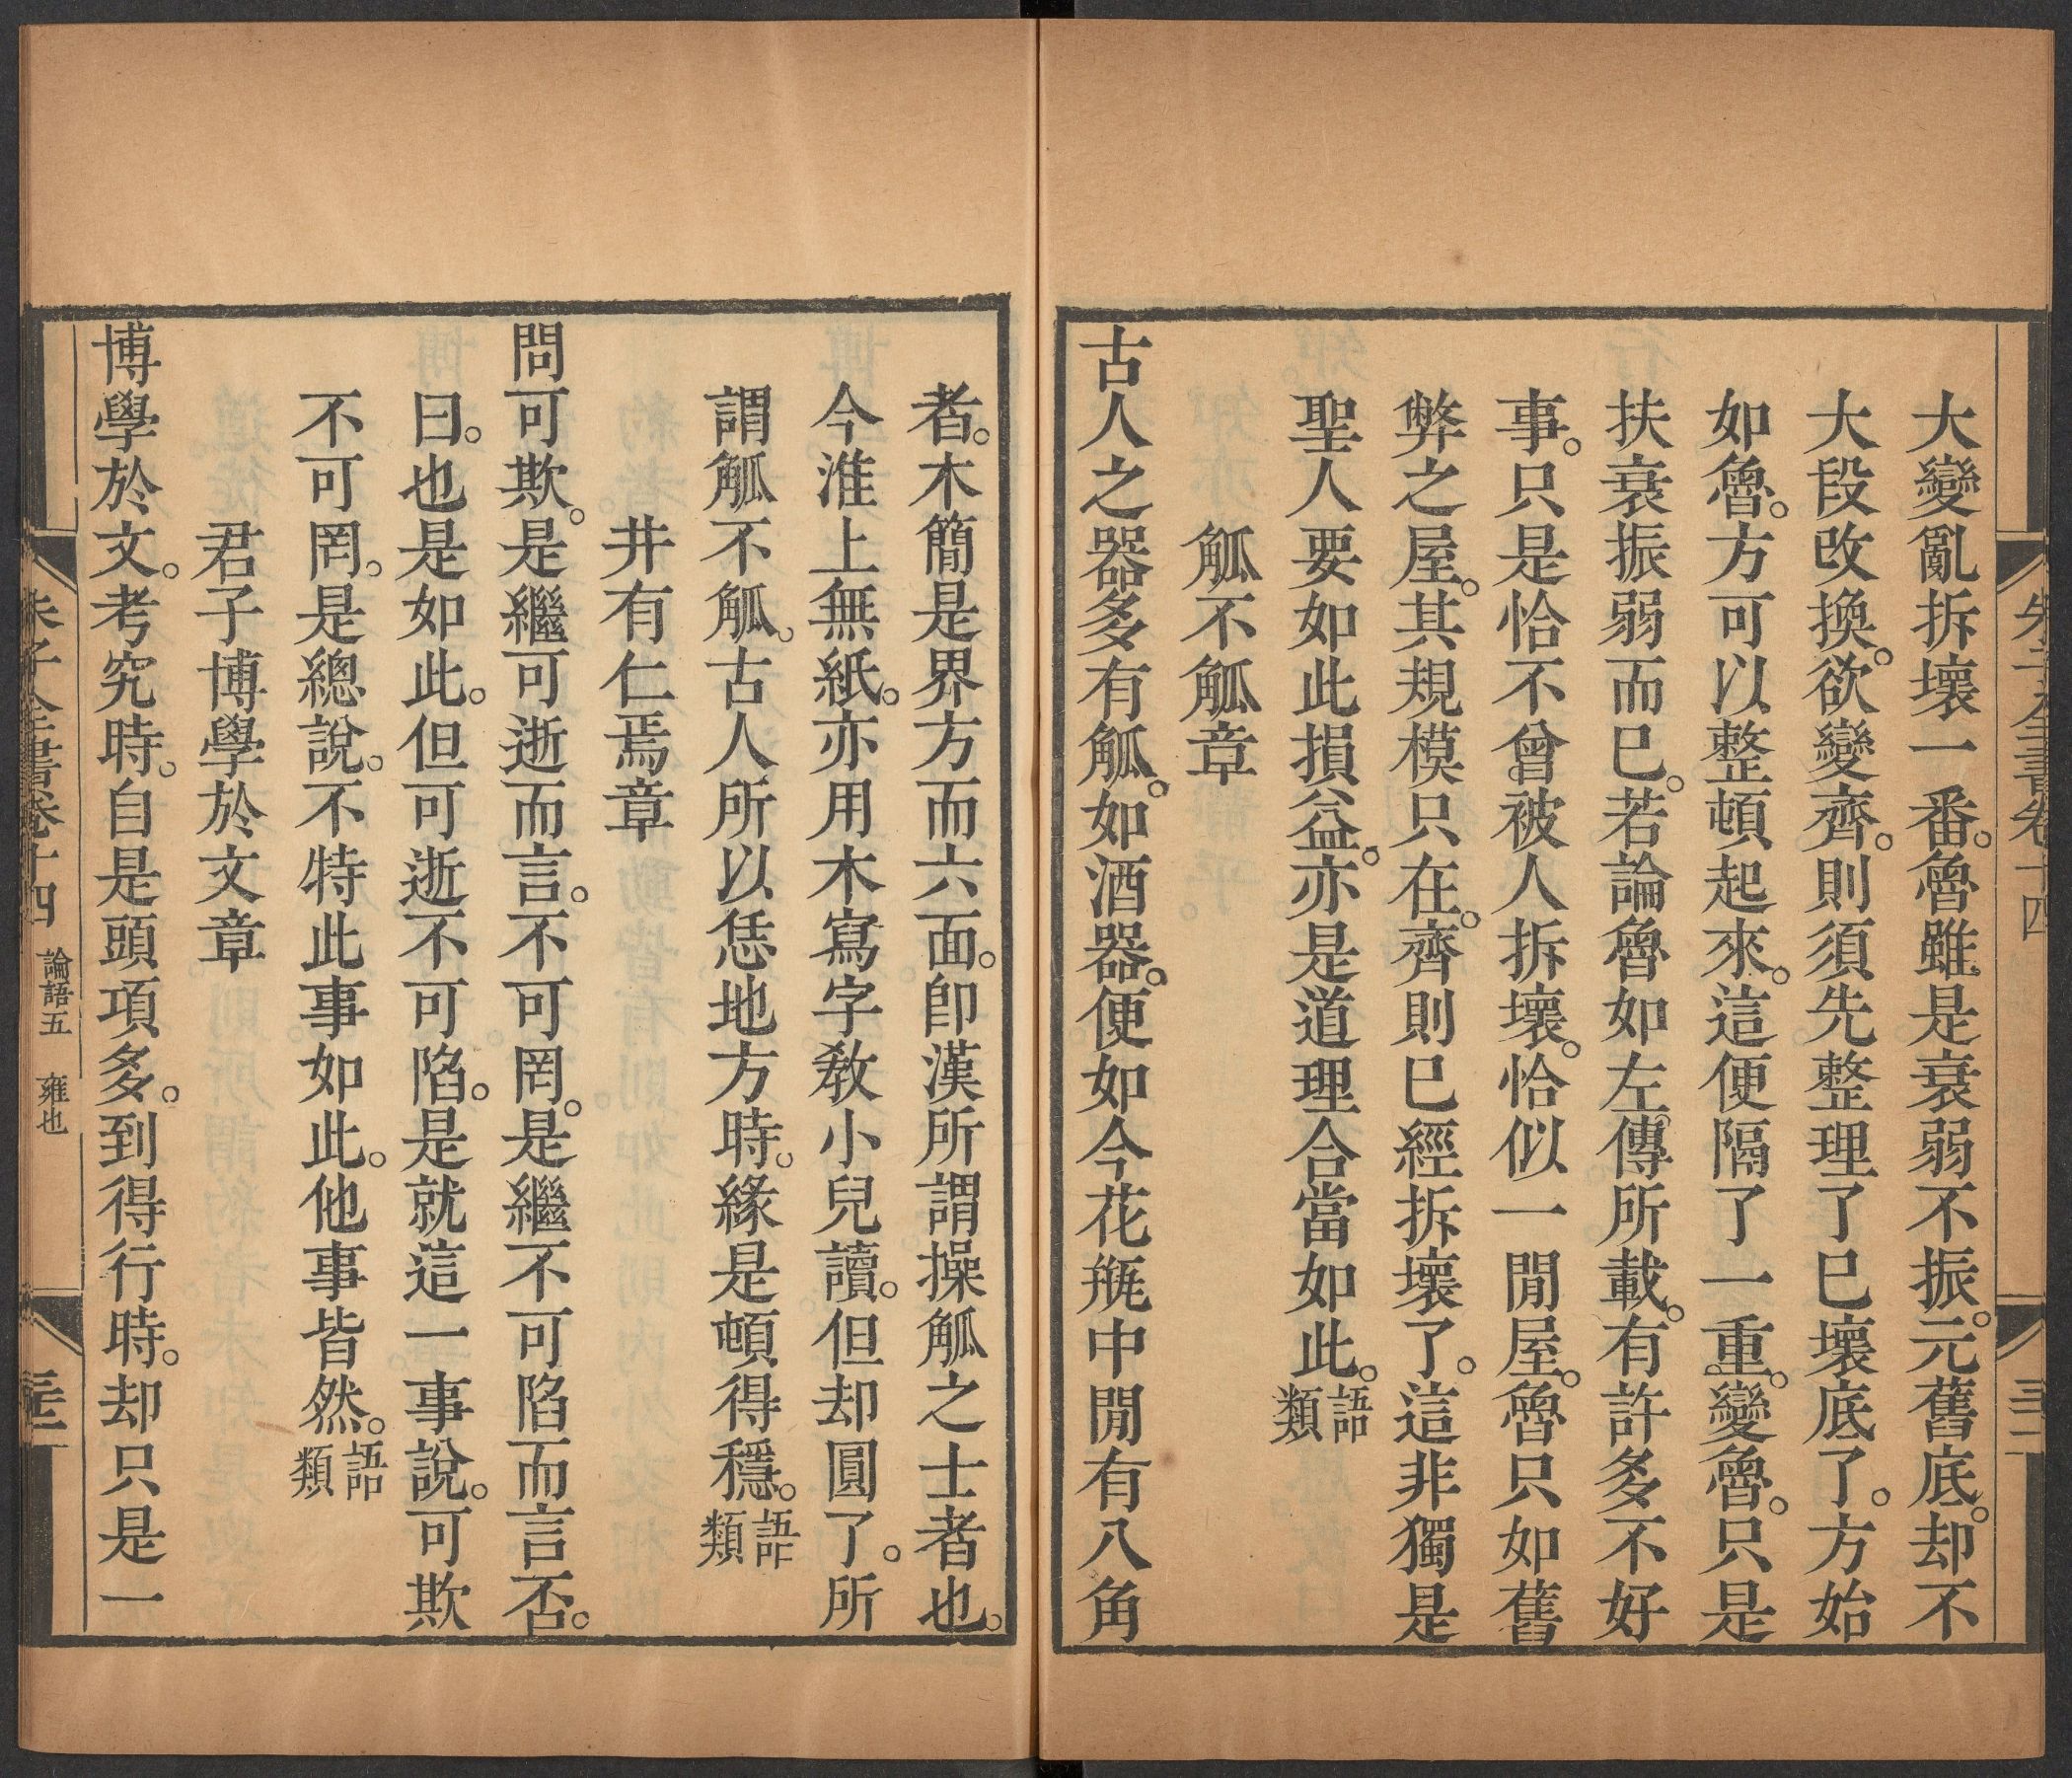 大變亂拆壞一番。魯雖是衰弱不振。元舊底。却不
大段改換。欲變齊。則須先整理了巳壞底了。方始
如魯。方可以整頓起來。這便隔了一重。變魯。只是
扶衰振弱而巳。若論魯如左傳所載。有許多不好
事。只是恰不曾被人拆壞。恰似一閒屋。魯只如舊
弊之屋。其規模只在。齊則巳經拆壞了。這非獨是
聖人要如此損益。亦是道理合當如此。語類
觚不觚章
古人之器多有觚。如酒器。便如今花瓶中閒有八角
者。木簡是界方而六面。卽漢所謂操觚之士者也。
今淮上無紙。亦用木寫字教小兒讀。但却圓了。所
謂觚不觚。古人所以恁地方時。緣是頓得穩。語類
井有仁焉章
問可欺。是繼可逝而言。不可罔。是繼不可陷而言否。
曰。也是如此。但可逝不可陷。是就這一事說。可欺
不可罔。是總說。不特此事如此。他事皆然。語類
君子博學於文章
博學於文。考究時。自是頭項多。到得行時。却只是一
朱子全書卷十四 論語五 雍也